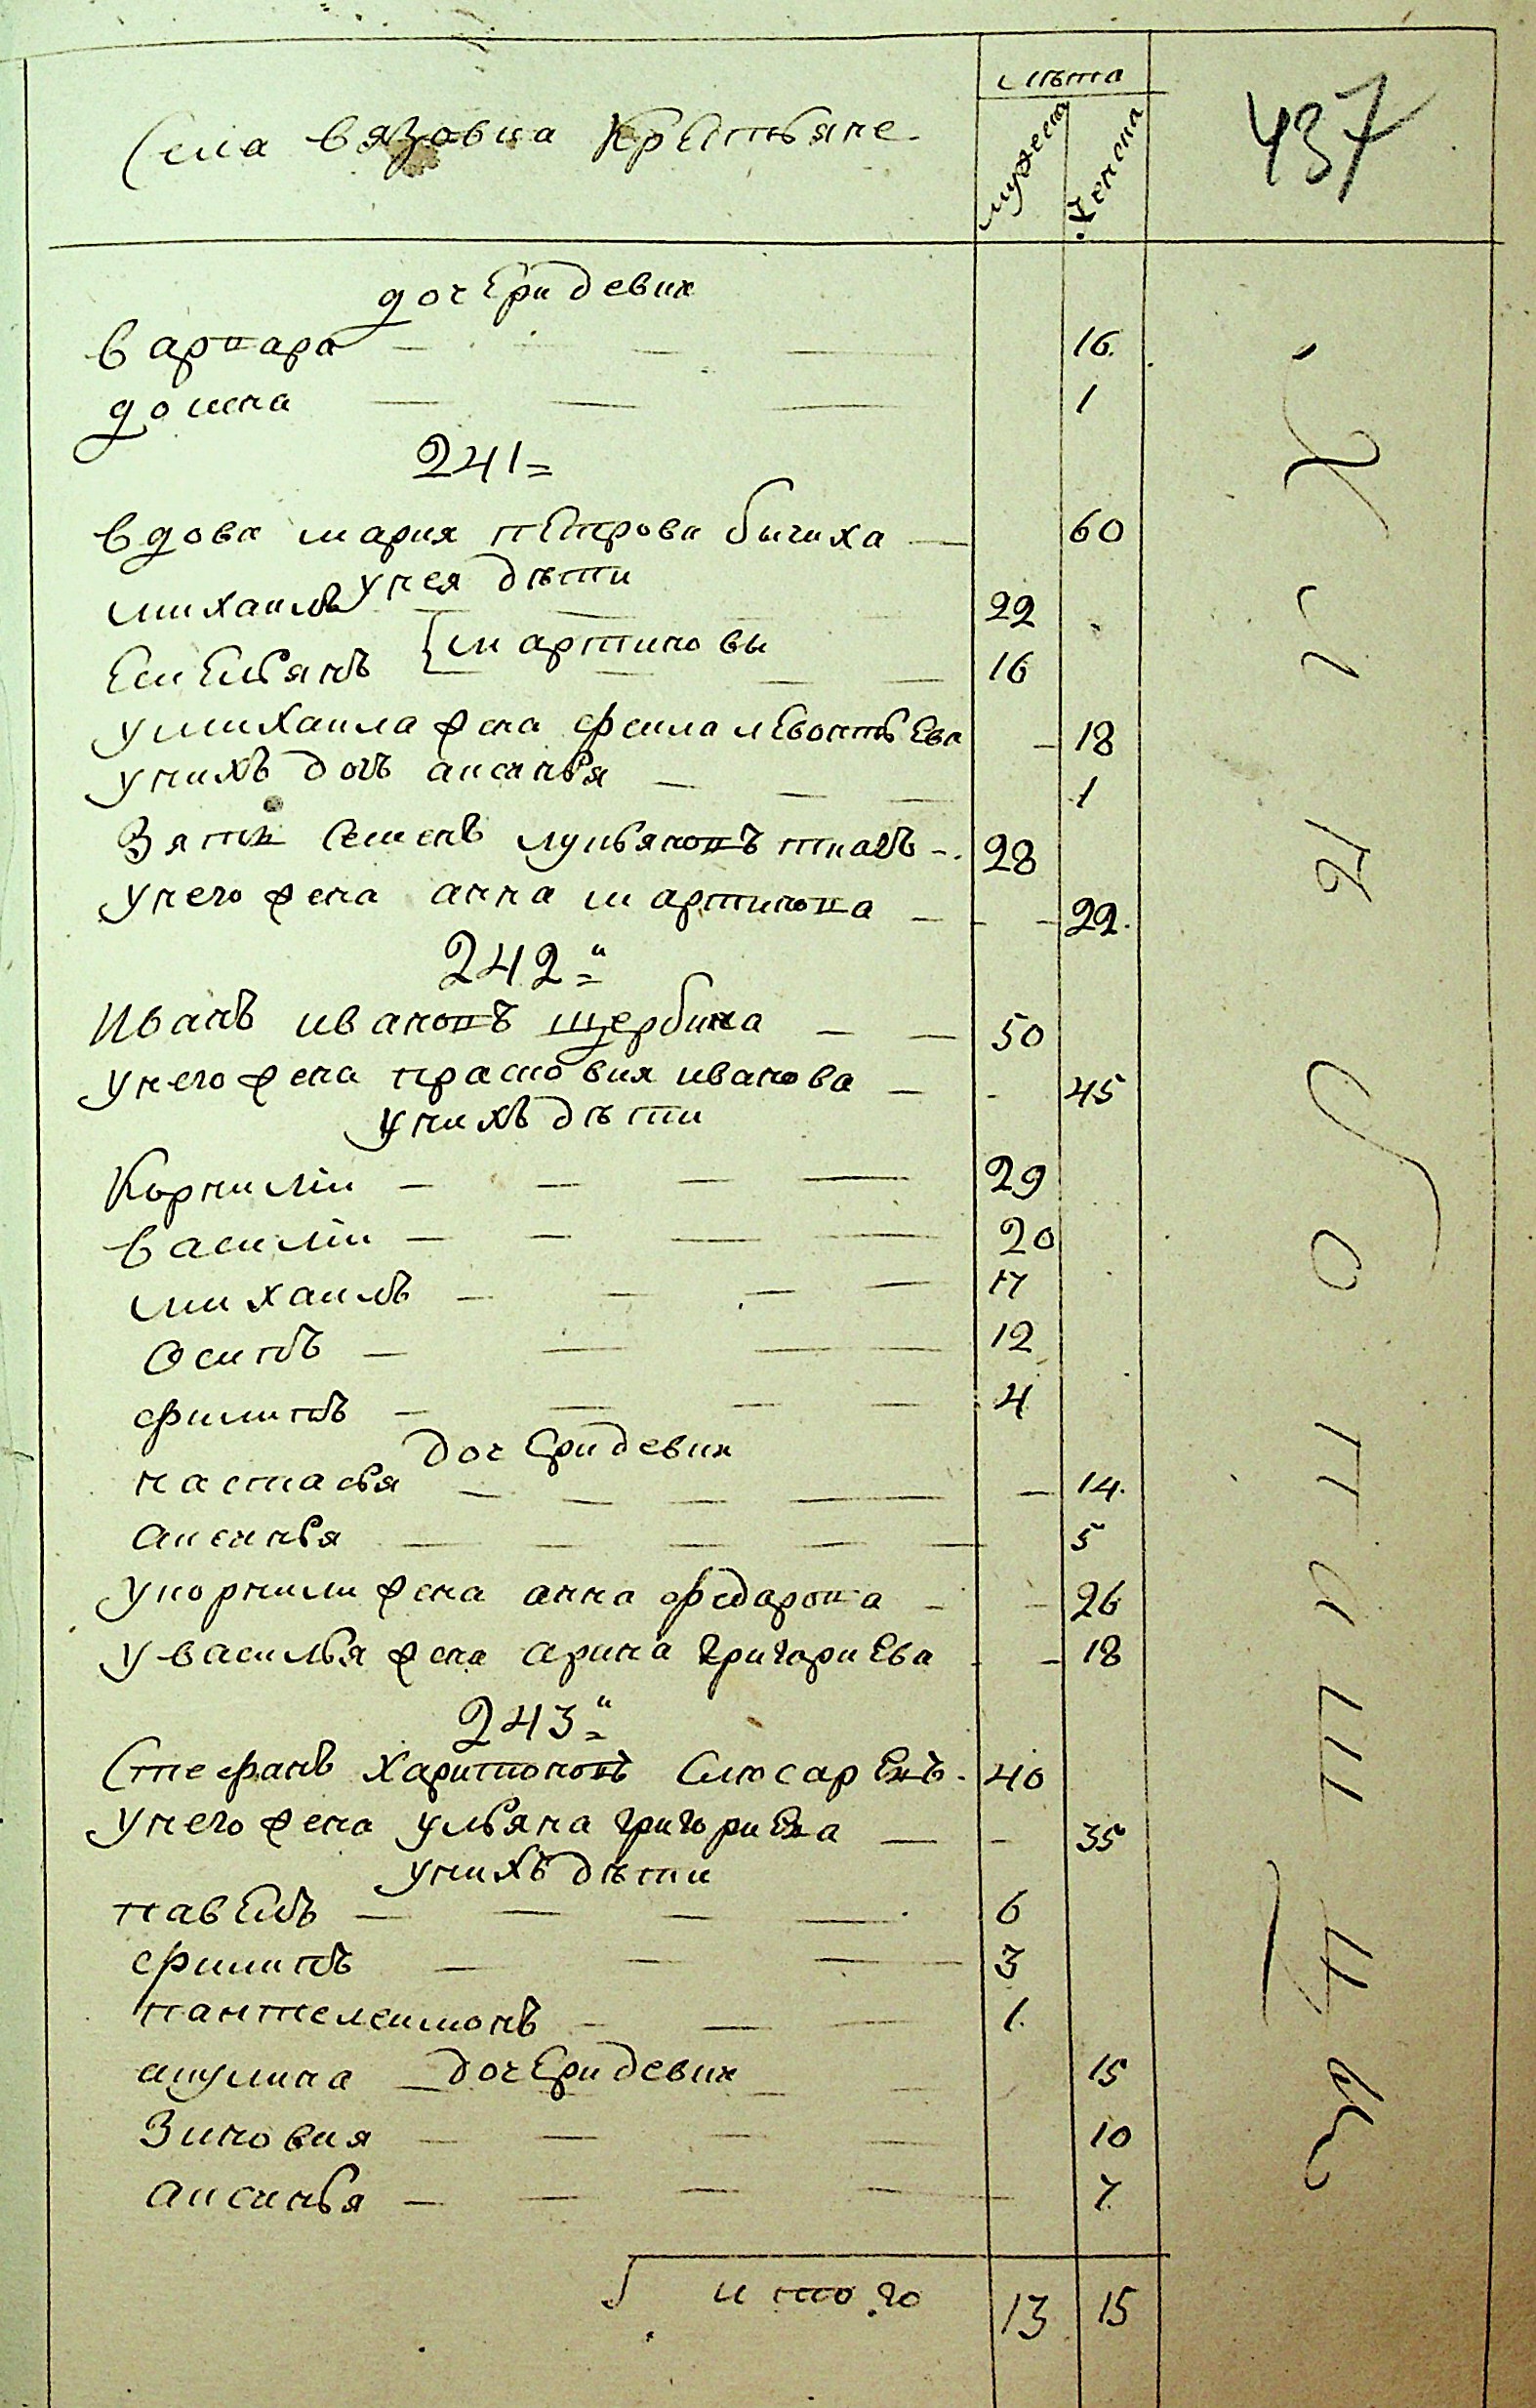 лѣта
Села Вязовка Крестьяне
мужеск
женска
437
дочери девки
варвара 16.
домна 1
241=
вдова мария петрова бычиха 60
унея дѣти
михаилъ 22
{мартиновы
Емельянъ 16
умихаила жена феила левонтьева 18
унихъ дочь аксинья 1
Зять Семенъ лукьяновъ ткачь 28
унего жена анна мартинова 22.
242="
Иванъ ивановъ щербина 50
унего жена прасковия иванова 45
унихъ дѣти
Корнилій 29
василій 20
михаилъ 17
Осипъ 12
филипъ 4
дочери девки
настасья 14.
аксинья 5
укорнили жена анна федарова 26
увасилья жена арина григориева 18
243="
Стефанъ харитоновъ слюсаренъ 40
унего жена ульяна григориева 35
унихъ дѣти
павелъ 6
филипъ 3
пантелеимонъ 1.
дочери девки
акулина 15
Зиновия 10
аксинья 7
итого 13 15